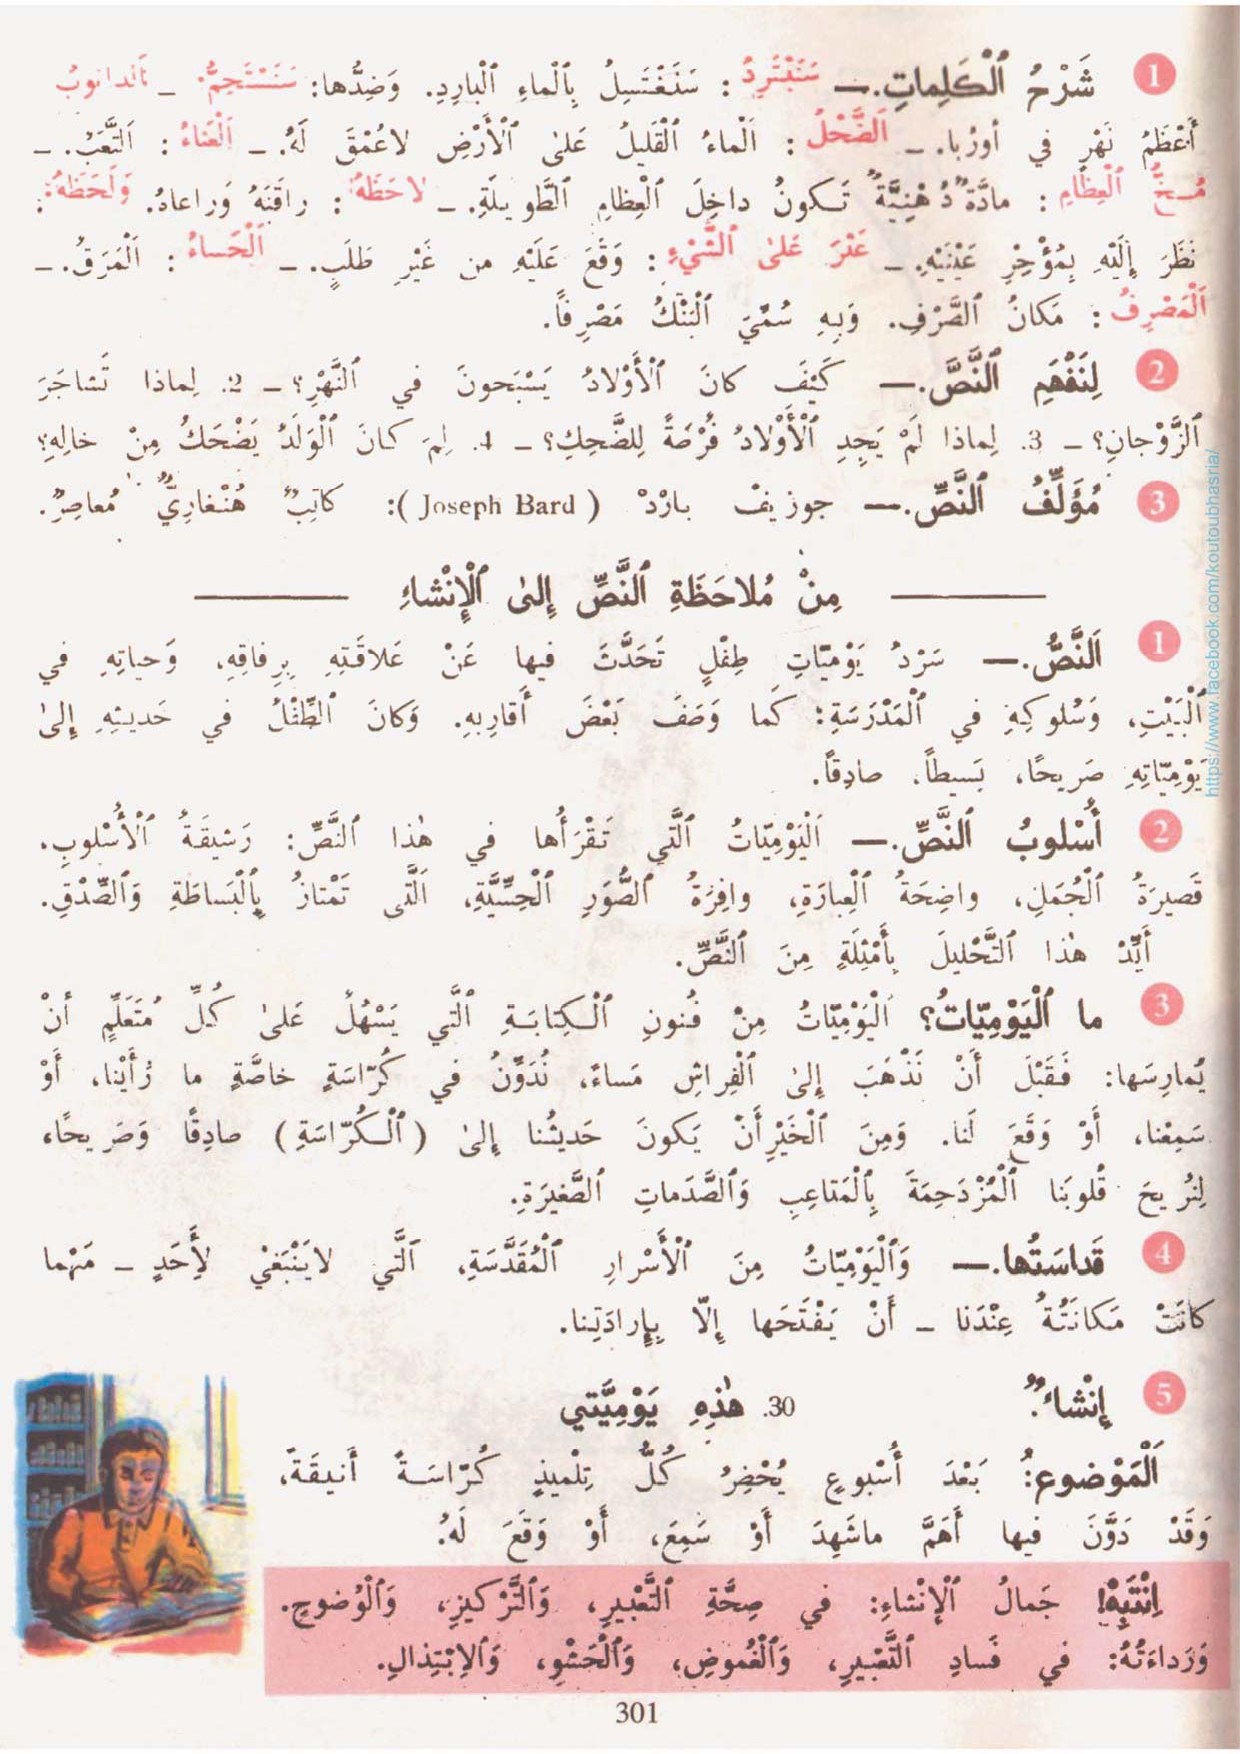 1 شَرْحُ ٱلْكَلِماتِ.— سَنَبْتَرِدُ : سَنَغْتَسِلُ بِٱلْماءِ ٱلْبارِدِ. وَضِدُّها: سَنَسْتَحِمُّ. – اَلدانوبُ
أَعْظَمُ نَهْرٍ في أورُبا. – اَلضَّحْلُ : اَلْماءُ ٱلْقَليلُ عَلىٰ ٱلْأَرْضِ لاعُمْقَ لَهُ. – اَلْعَناءُ : اَلتَّعَبُ. –
مُخُّ ٱلْعِظامِ : مادَّةٌ دُهْنِيَّةٌ تَكونُ داخِلَ ٱلْعِظامِ ٱلطَّويلَةِ. – لاحَظَهُ : راقَبَهُ وَراعاهُ. وَلَحَظَهُ :
نَظَرَ إِلَيْهِ بِمُؤْخِرِ عَيْنَيْهِ. – عَثَرَ عَلىٰ ٱلشَّيْءِ : وَقَعَ عَلَيْهِ من غَيْرِ طَلَبٍ. – اَلْحَساءُ : اَلْمَرَقُ. –
اَلْمَصْرِفُ : مَكانُ ٱلصَّرْفِ. وَبِهِ سُمِّيَ ٱلْبَنْكُ مَصْرِفاً.
2 لِنَفْهَمِ ٱلنَّصَّ.— كَيْفَ كانَ ٱلْأَوْلادُ يَسْبَحونَ في ٱلنَّهْرِ؟ – 2. لِماذا تَشاجَرَ
ٱلزَّوْجانِ؟ – 3. لِماذا لَمْ يَجِدِ ٱلْأَوْلادُ فُرْصَةً لِلضَّحِكِ؟ – 4. لِمَ كانَ ٱلْوَلَدُ يَضْحَكُ مِنْ خالِهِ؟
3 مُؤَلِّفُ ٱلنَّصِّ.— جوزيفْ بارْدْ (Joseph Bard): كاتِبٌ هُنْغارِيٌّ مُعاصِرٌ.
مِنْ مُلاحَظَةِ ٱلنَّصِّ إِلىٰ ٱلْإِنْشاءِ
1 اَلنَّصُّ.— سَرْدُ يَوْمِيّاتِ طِفْلٍ تَحَدَّثَ فيها عَنْ عَلاقَتِهِ بِرِفاقِهِ، وَحياتِهِ في
ٱلْبَيْتِ، وَسُلوكِهِ في ٱلْمَدْرَسَةِ؛ كَما وَصَفَ بَعْضَ أَقارِبِهِ. وَكانَ ٱلطِّفْلُ في حَديثِهِ إِلىٰ
يَوْمِيّاتِهِ صَريحًا، بَسيطاً، صادِقاً.
2 أُسْلوبُ ٱلنَّصِّ.— اَلْيَوْمِيّاتُ ٱلَّتي تَقْرَأُها في هٰذا ٱلنَّصِّ: رَشيقَةُ ٱلْأُسْلوبِ.
قَصيرَةُ ٱلْجُمَلِ، واضِحَةُ ٱلْعِبارَةِ، وافِرَةُ ٱلصُّوَرِ ٱلْحِسِّيَّةِ، اَلَّتى تَمْتازُ بِٱلْبَساطَةِ وَٱلصِّدْقِ.
أَيِّدْ هٰذا ٱلتَّحْليلَ بِأَمْثِلَةٍ مِنَ ٱلنَّصِّ.
3 ما ٱلْيَوْمِيّاتُ؟ اَلْيَوْمِيّاتُ مِنْ فُنونِ ٱلْكِتابَةِ ٱلَّتي يَسْهُلُ عَلىٰ كُلِّ مُتَعَلِّمٍ أنْ
يُمارِسَها: فَقَبْلَ أَنْ نَذْهَبَ إِلىٰ ٱلْفِراشِ مَساءً، نُدَوِّنُ في كُرّاسَةٍ خاصَّةٍ ما رَأَيْنا، أَوْ
سَمِعْنا، أَوْ وَقَعَ لَنا. وَمِنَ ٱلْخَيْرِ أَنْ يَكونَ حَديثُنا إِلىٰ (ٱلْكُرّاسَةِ) صادِقًا وَصَريحًا،
لِنُريحَ قُلوبَنا ٱلْمُزْدَحِمَةَ بِٱلْمَتاعِبِ وَٱلصَّدَماتِ ٱلصَّغيرَةِ.
4 قَداسَتُها.— وَٱلْيَوْمِيّاتُ مِنَ ٱلْأَسْرارِ ٱلْمُقَدَّسَةِ، اَلَّتي لايَنْبَغي لِأَحَدٍ – مَهْما
كانَتْ مَكانَتُهُ عِنْدَنا – أَنْ يَفْتَحَها إِلّا بِإِرادَتِنا.
5 إِنْشاءٌ. 30. هٰذِهِ يَوْمِيَّتي
اَلْمَوْضوع: بَعْدَ أُسْبوعٍ يُحْضِرُ كُلُّ تِلْميذٍ كُرّاسَةً أَنيقَةً،
وَقَدْ دَوَّنَ فيها أَهَمَّ ماشَهِدَ أَوْ سَمِعَ، أَوْ وَقَعَ لَهُ.
اِنْتَبِهْ! جَمالُ ٱلْإِنْشاءِ: في صِحَّةِ ٱلتَّعْبيرِ، وَٱلتَّرْكيزِ، وَٱلْوُضوحِ.
وَرَداءَتُهُ: في فَسادِ ٱلتَّعْبيرِ، وَٱلْغُموضِ، وَٱلْحَشْوِ، وَٱلِابْتِذالِ.
301
https://www.facebook.com/koutoubhasria/